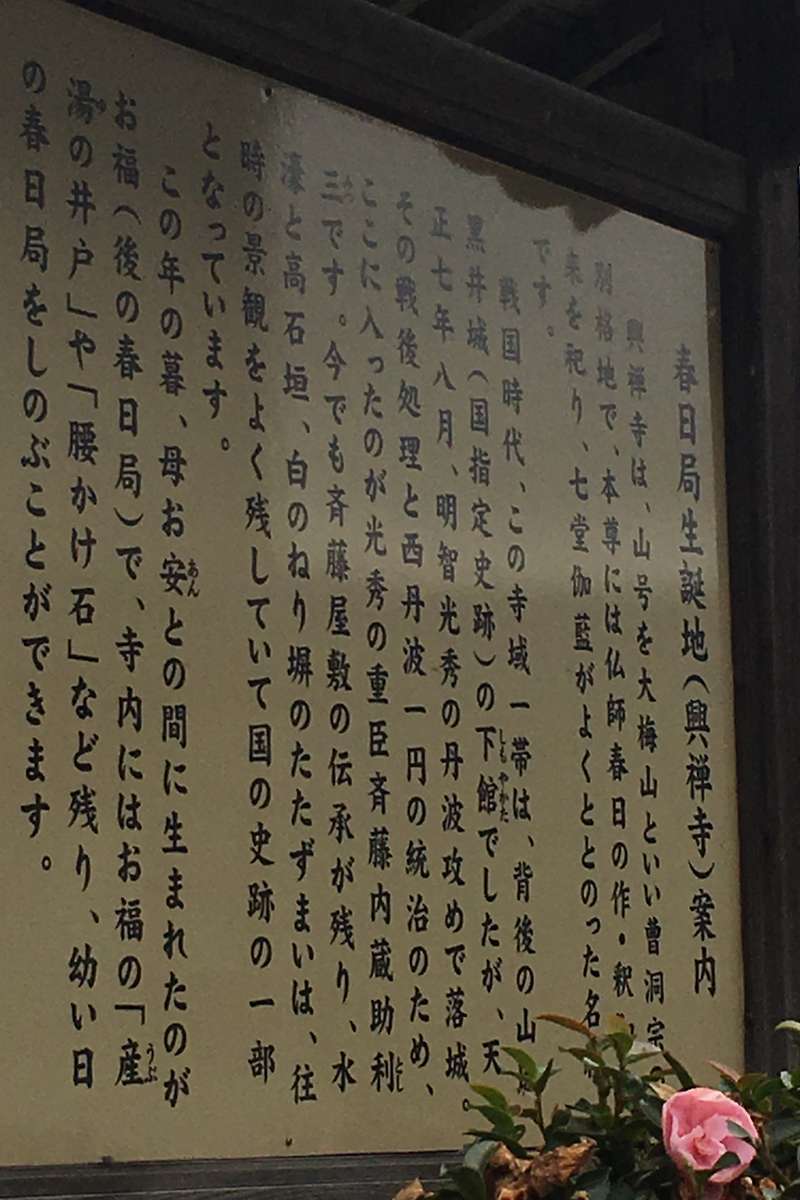 春日局生誕地(興禅寺)案内
興禅寺は、山号を大梅山といい曹洞宗
別格地で、本尊には仏師春日の作・釈
来を祀り、七堂伽藍がよくととのった名
です。
戦国時代、この寺域一帯は、背後の山
黒井城(国指定史跡)の下館でしたが、天
しもやかた
正七年八月、明智光秀の丹波攻めで落城。
その戦後処理と西丹波一円の統治のため、
ここに入ったのが光秀の重臣斉藤内蔵助利
とし
三です。今でも斉藤屋敷の伝承が残り、水
みつ
濠と高石垣、白のねり塀のたたずまいは、往
時の景観をよく残していて国の史跡の一部
となっています。
この年の暮、母お安との間に生まれたのが
あん
お福(後の春日局)で、寺内にはお福の「産
うぶ
湯の井戸」や「腰かけ石」など残り、幼い日
の春日局をしのぶことができます。